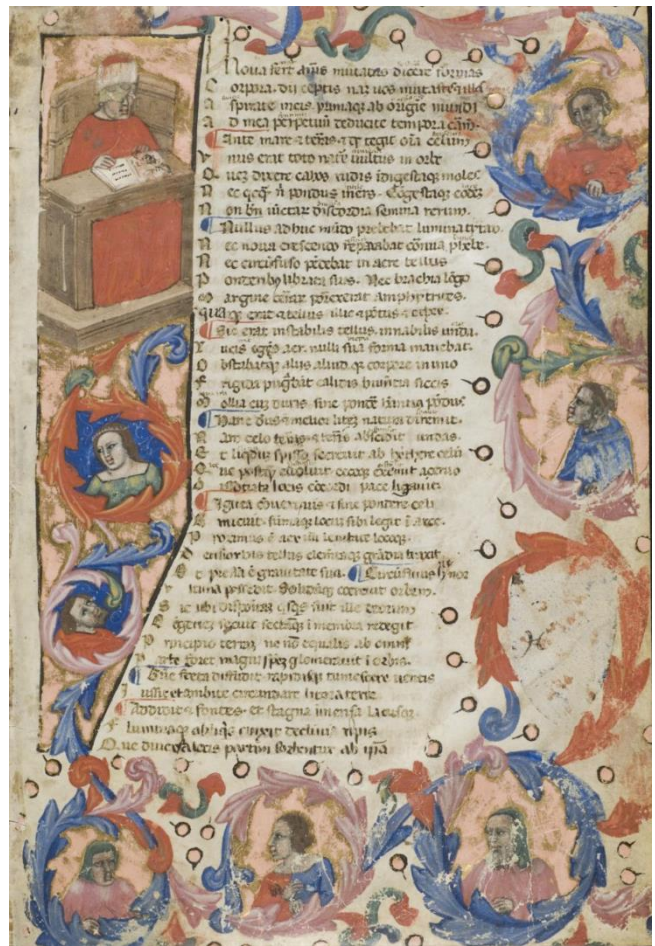 I Noua fert aĩus mutatas dicere formas
Corpora dii ceptis nam uos mutastis 
Aspirate meis primaq; ab origine mundi
Ad mea perpetuũ deducite tempora carm̃
Ante mare 7 terras 7 qd̃ tegit oĩa celum
Vnus erat toto nat̃e uultus in orbe
Quẽ dixere cahos rudis ĩdigestaq; moles
Nec qcq̃ ñ pondus iners 
Non bñ iũctar discordia semina rerum
Nullus adhuc mũdo prebebat lumina titan
Nec noua crescendo repabat cornua phebe
Nec circũfuso pendebat in aere tellus
Ponderibꝫ librata suis. Nec brachia lõgo
Margine terrar porrexerat amphytrites
qua erat 7 tellus illic 7 põtus 7 ether
Sic erat instabilis tellus. innabilis unda
lucis egẽs aer. nulli sua forma manebat
Obstabatq; aliis aliud. q; corpore in uno
Frigida pugñbat calidis humẽtia siccis
Mollia cuz duris. sine pondere 
Hanc deus 7 melior litez natura diremit
Nam celo terras 7 terris abscidit undas
Et liquidũ spisso secreuit ab 
 postq̃ euoluit cecoq; exemit aceruo
 locis cõcordi pace ligauit
Ignea 7 sine pondere celi
Emicuit. sũmaq; locũ sibi legit ĩ arce
Proximus ẽ aer illi leuitate locoq;
Densior his tellus 
Et pressa ẽ grauitate sua. Circũfluus 
Vltima possedit. solidũq; cohercuit orbem
Sic ubi dispositã qsqs fuit ille deorum
 ĩ membra redegit
Principio terrã ne nõ equalis ab omni
Parte foret magni spẽz glomerauit ĩ orbis
 rapidisq; tumescere uentis
Iussit et ambite circundare litora terre
Addidit 7 fontes et stagna ĩmensa lacusq;
Fluminaq; obliqs cinxit decliuia ripis
Que diuersa locis partim sorbentur ab ipsa